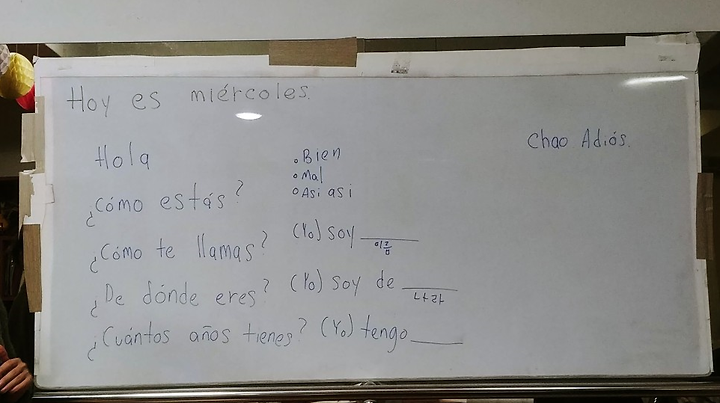 Hoy es miércoles.
Chao Adiós.
Hola
• Bien
• Mal
• Asi asi
¿Cómo estás?
¿Cómo te llamas? (Yo) soy ____
¿De dónde eres? (Yo) soy de ____
¿Cuántos años tienes? (Yo) tengo ____